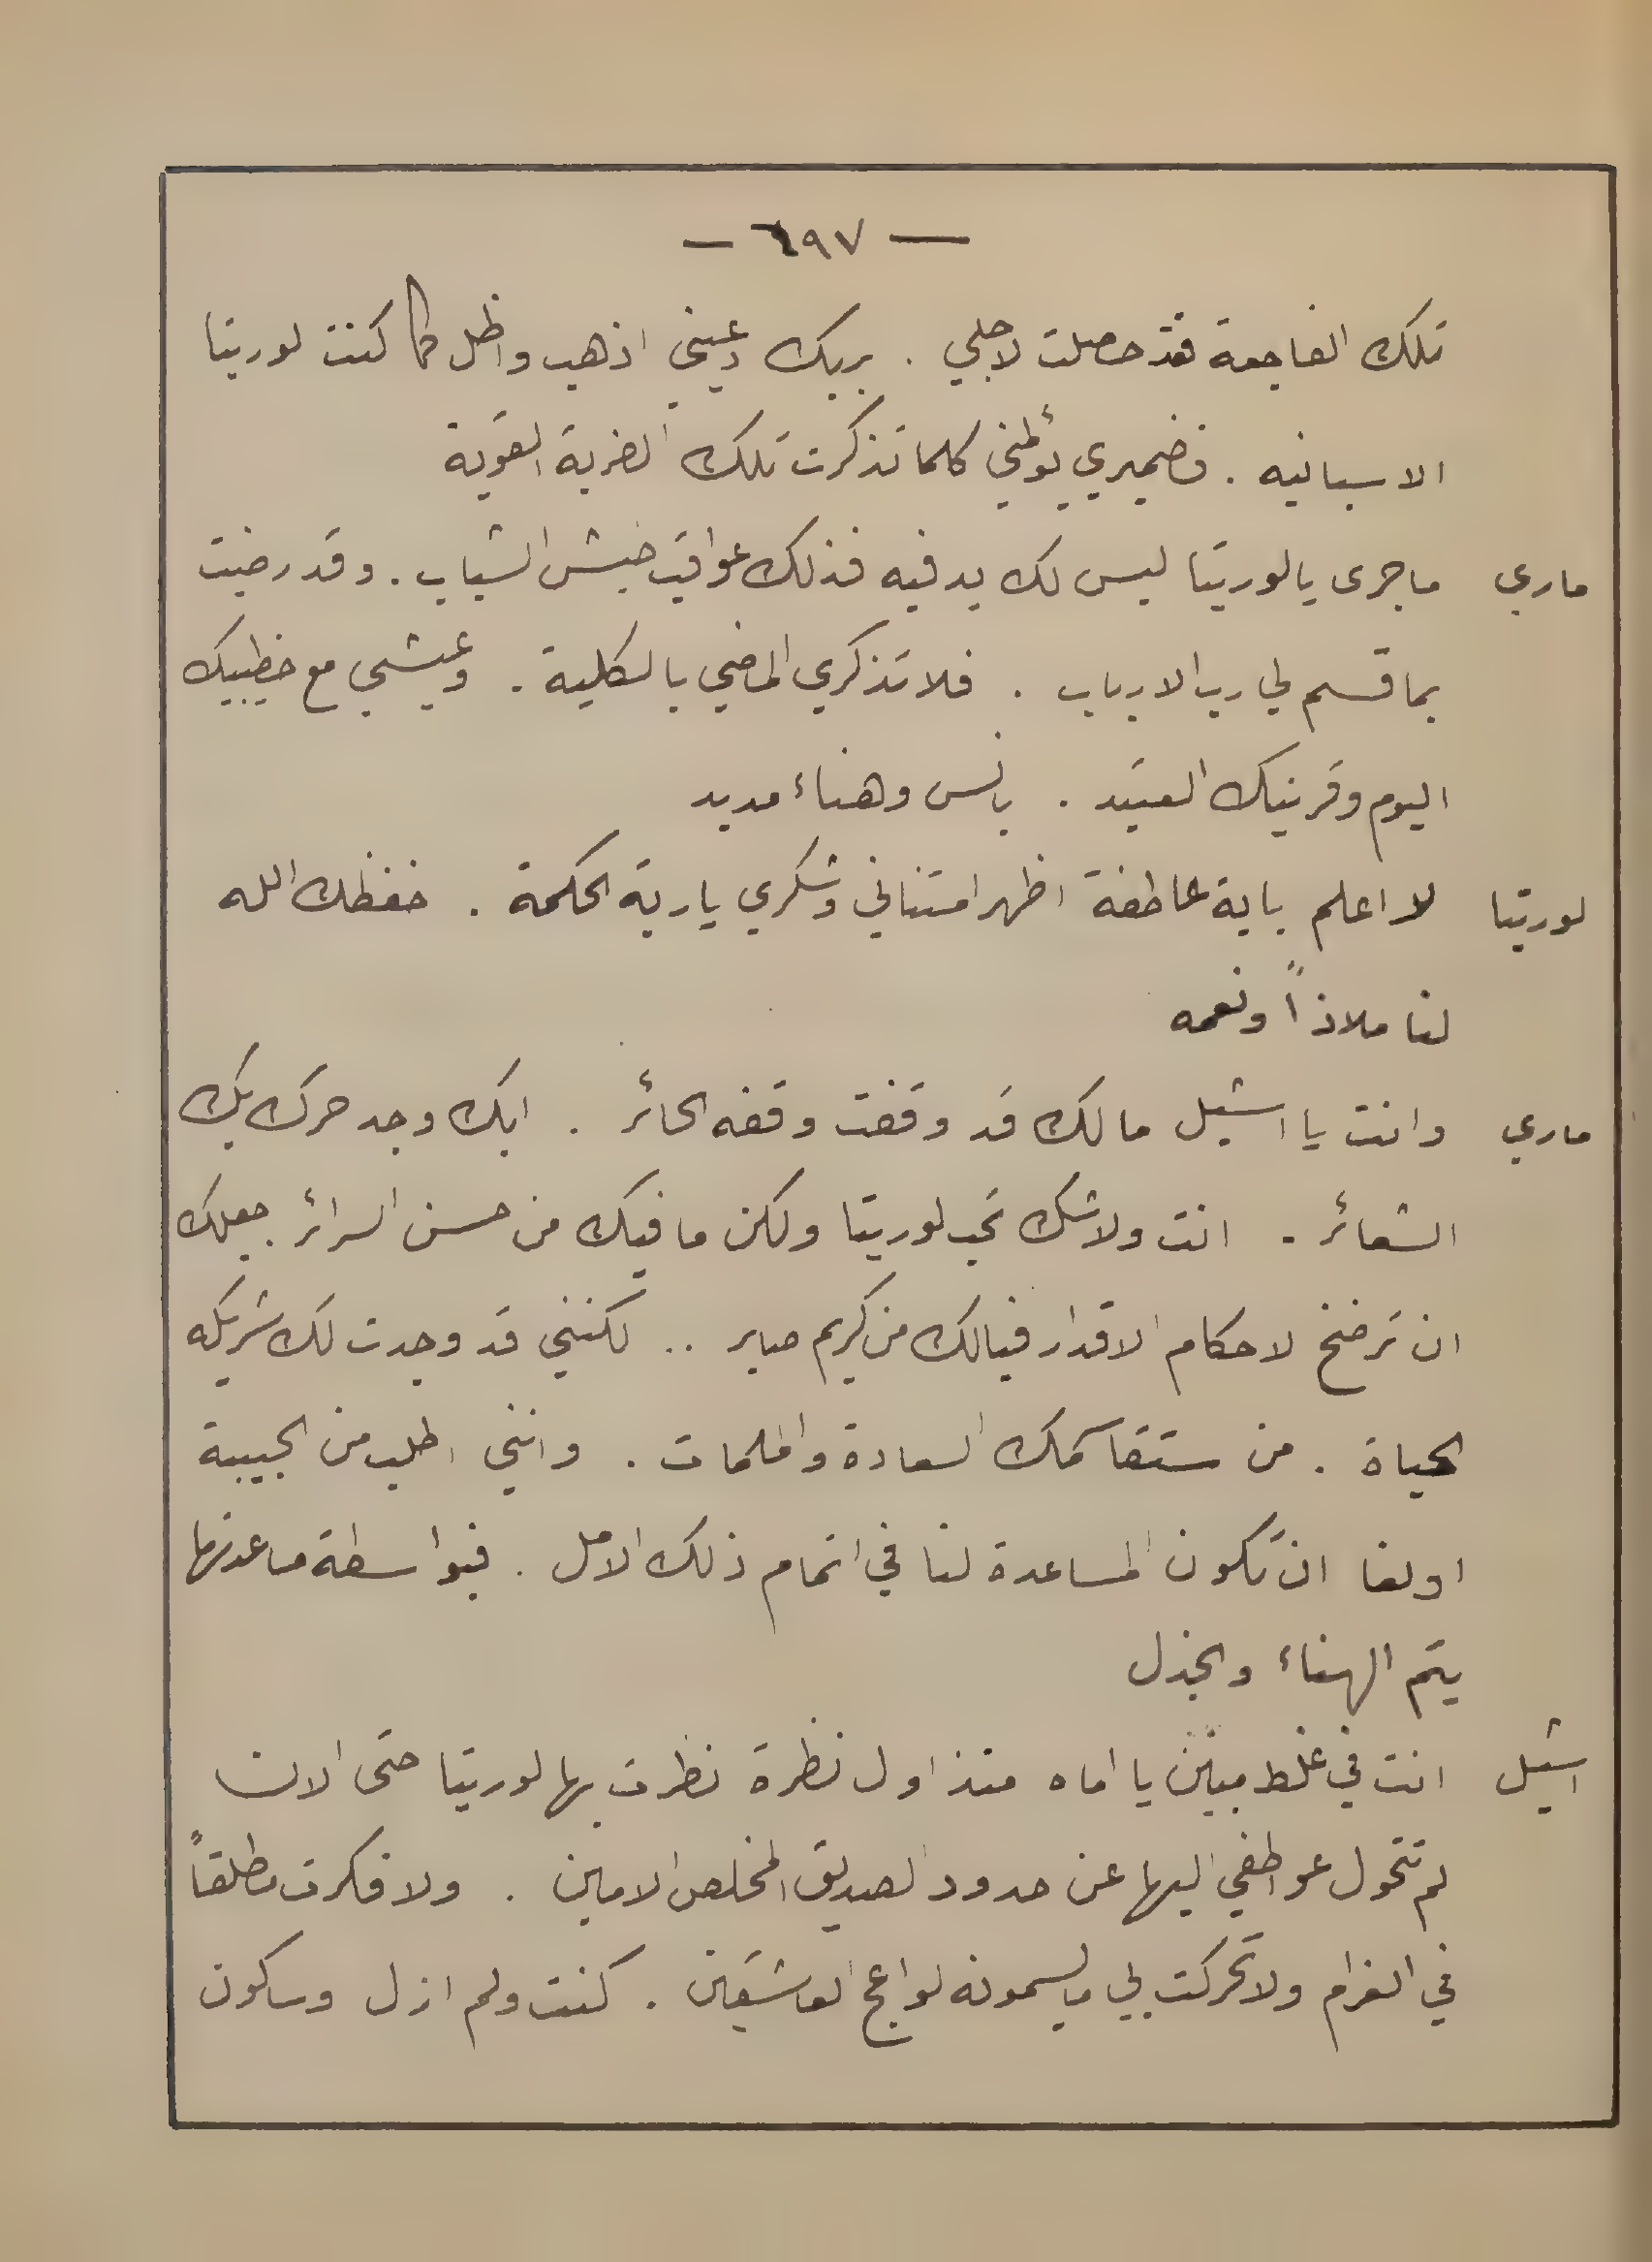 — ٦٩٧ —
تلك الفاجعة قد حصلت لاجلي . بربك دعيني اذهب واظل كما كنت لوريتا
الاسبانيه . فضميري يؤلمني كلما تذكرت تلك الضربة القوية
ماري ماجرى يالوريتا ليس لك يد فيه فذلك عواقب طيش الشباب . وقد رضيت
بما قسم لي رب الارباب . فلا تذكري الماضي بالكلية . وعيشي مع خطيبك
اليوم وقرينك العتيد . بانس وهناء مديد
لوريتا لا اعلم باية عاطفة اظهر امتناني وشكري ياربة الحكمة . حفظك الله
لنا ملاذاً ونعمه
ماري وانت يا اشيل مالك قد وقفت وقفه الحائر . ابك وجد حرك بك
الشعائر . انت ولاشك تحب لوريتا ولكن مافيك من حسن السرائر . جعلك
ان ترضخ لاحكام الاقدار فيالك من كريم صابر .. لكنني قد وجدت لك شريكه
الحياة . من ستقاسمك السعادة والملمات . وانني اطلب من الحبيبة
اولغا ان تكون المساعدة لنا في اتمام ذلك الامل . فبواسطة مساعدتها
يتم الهناء والجذل
اشيل انت في غلط مبين يا اماه منذ اول نظرة نظرت بها لوريتا حتى الان
لم تتحول عواطفي اليها عن حدود الصديق المخلص الامين . ولا فكرت مطلقاً
في الغرام ولا تحركت بي مايسمونه لواعج العاشقين . كنت ولم ازل وساكون